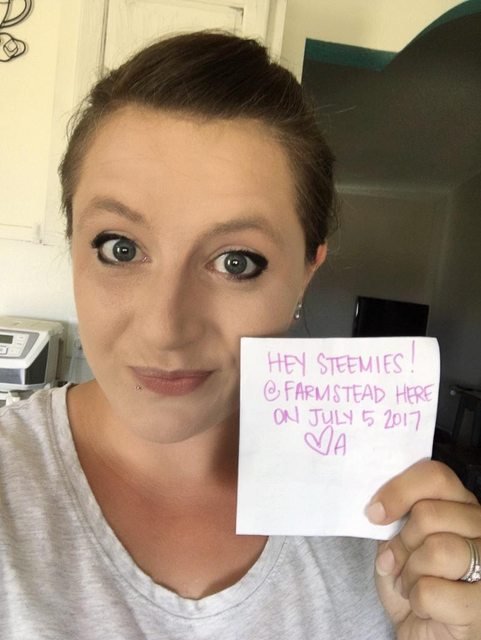 HEY STEEMIES!
@FARMSTEAD HERE
ON JULY 5 2017
♡A